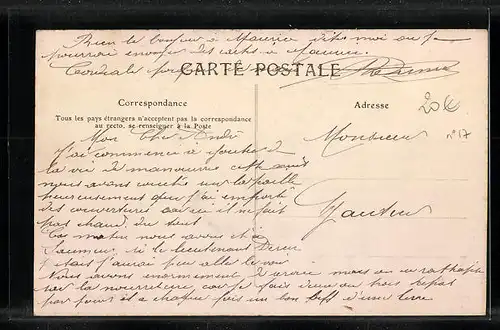 Bien le bonjour à Maurice dites moi où je
pourrai envoyer des cartes à
Cordiale CARTE POSTALE
Correspondance
Adresse
Tous les pays étrangers n'acceptent pas la correspondance
au recto, se renseigner à la Poste
20€
n° 17
Monsieur
Mon Cher André
J'ai commencé à goûter à
la vie de manœuvres cette nuit
nous avons couché sur la paille
heureusement que j'ai emporté
des couvertures car il ne fait
pas chaud du tout
Ce matin nous avons été à
Saumur si le lieutenant
était j'aurai pu aller le voir
Nous avons énormément à mais on se rattrape
sur la nourriture, car je fais deux ou trois repas
par jour il y a chaque fois un bon biff d'une livre